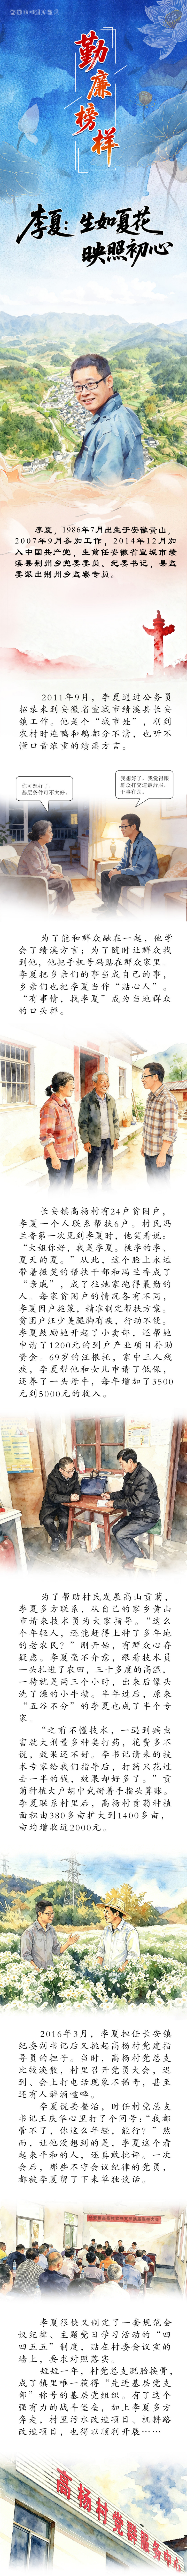 勤廉榜样
李夏：生如夏花
映照初心
李夏，1986年7月出生于安徽黄山，
2007年9月参加工作，2014年12月加
入中国共产党，生前任安徽省宣城市绩
溪县荆州乡党委委员、纪委书记，县监
委派出荆州乡监察专员。
2011年9月，李夏通过公务员
招录来到安徽省宣城市绩溪县长安
镇工作。他是个“城市娃”，刚到
农村时连鸭和鹅都分不清，也听不
懂口音浓重的绩溪方言。
你可想好了，
基层条件可不太好。
我想好了，我觉得跟
群众打交道最舒服，
干事有劲。
为了能和群众融在一起，他学
会了绩溪方言；为了随时让群众找
到他，他把手机号码贴在群众家里。
李夏把乡亲们的事当成自己的事，
乡亲们也把李夏当作“贴心人”。
“有事情，找李夏”成为当地群众
的口头禅。
长安镇高杨村有24户贫困户，
李夏一个人联系帮扶6户。村民冯
兰香第一次见到李夏时，他笑着说：
“大姐你好，我是李夏。桃李的李、
夏天的夏。”从此，这个脸上永远
带着微笑的帮扶干部和冯兰香成了
“亲戚”，成了往她家跑得最勤的
人。每家贫困户的情况各有不同，
李夏因户施策，精准制定帮扶方案。
贫困户汪少美腿脚有疾，行动不便。
李夏鼓励她开起了小卖部，还帮她
申请了1200元的到户产业项目补助
资金。69岁的汪根托，家中三人残
疾，李夏帮他和女儿申请了低保，
还养了一头母牛，每年增加了3500
元到5000元的收入。
为了帮助村民发展高山贡菊，
李夏多方联系，从自己的家乡黄山
市请来技术员为大家指导。“这么
个年轻人，还能赶得上种了多年地
的老农民？”刚开始，有群众心存
疑惑。李夏毫不介意，跟着技术员
一头扎进了农田，三十多度的高温，
一待就是两三个小时，出来后像去
洗了澡的小牛犊。半年过后，原来
“五谷不分”的李夏也成了半个专
家。
“之前不懂技术，一遇到病虫
害就大剂量多种类打药，花费多不
说，效果还不好。李书记请来的技
术专家给我们指导后，打药只花过
去一半的钱，效果却好多了。”贡
菊种植大户胡中武掰着手指头算账。
李夏联系村里后，高杨村贡菊种植
面积由380多亩扩大到1400多亩，
亩均增收近2000元。
2016年3月，李夏担任长安镇
纪委副书记后又挑起高杨村党建指
导员的担子。当时，高杨村党总支
比较涣散，村里召开党员大会，迟
到、会上打电话现象不稀奇，甚至
还有人醉酒喧哗。
李夏说要整治，时任村党总支
书记王庆华心里打了个问号：“我都
管不了，你这么年轻，能行？”然
而，让他没想到的是，李夏这个看
起来孱和的人，还真敢批评。一次
会后，那些不守会议纪律的党员，
都被李夏留了下来单独谈话。
李夏很快又制定了一套规范会
议纪律、主题党日学习活动的“四
四五五”制度，贴在村委会议室的
墙上，要求对照落实。
短短一年，村党总支脱胎换骨，
成了镇里唯一获得“先进基层党支
部”称号的基层党组织。有了这个
强有力的战斗堡垒，加上李夏多方
奔走，村里污水改造项目、机耕路
改造项目，也得以顺利开展……
高杨村党群服务中心